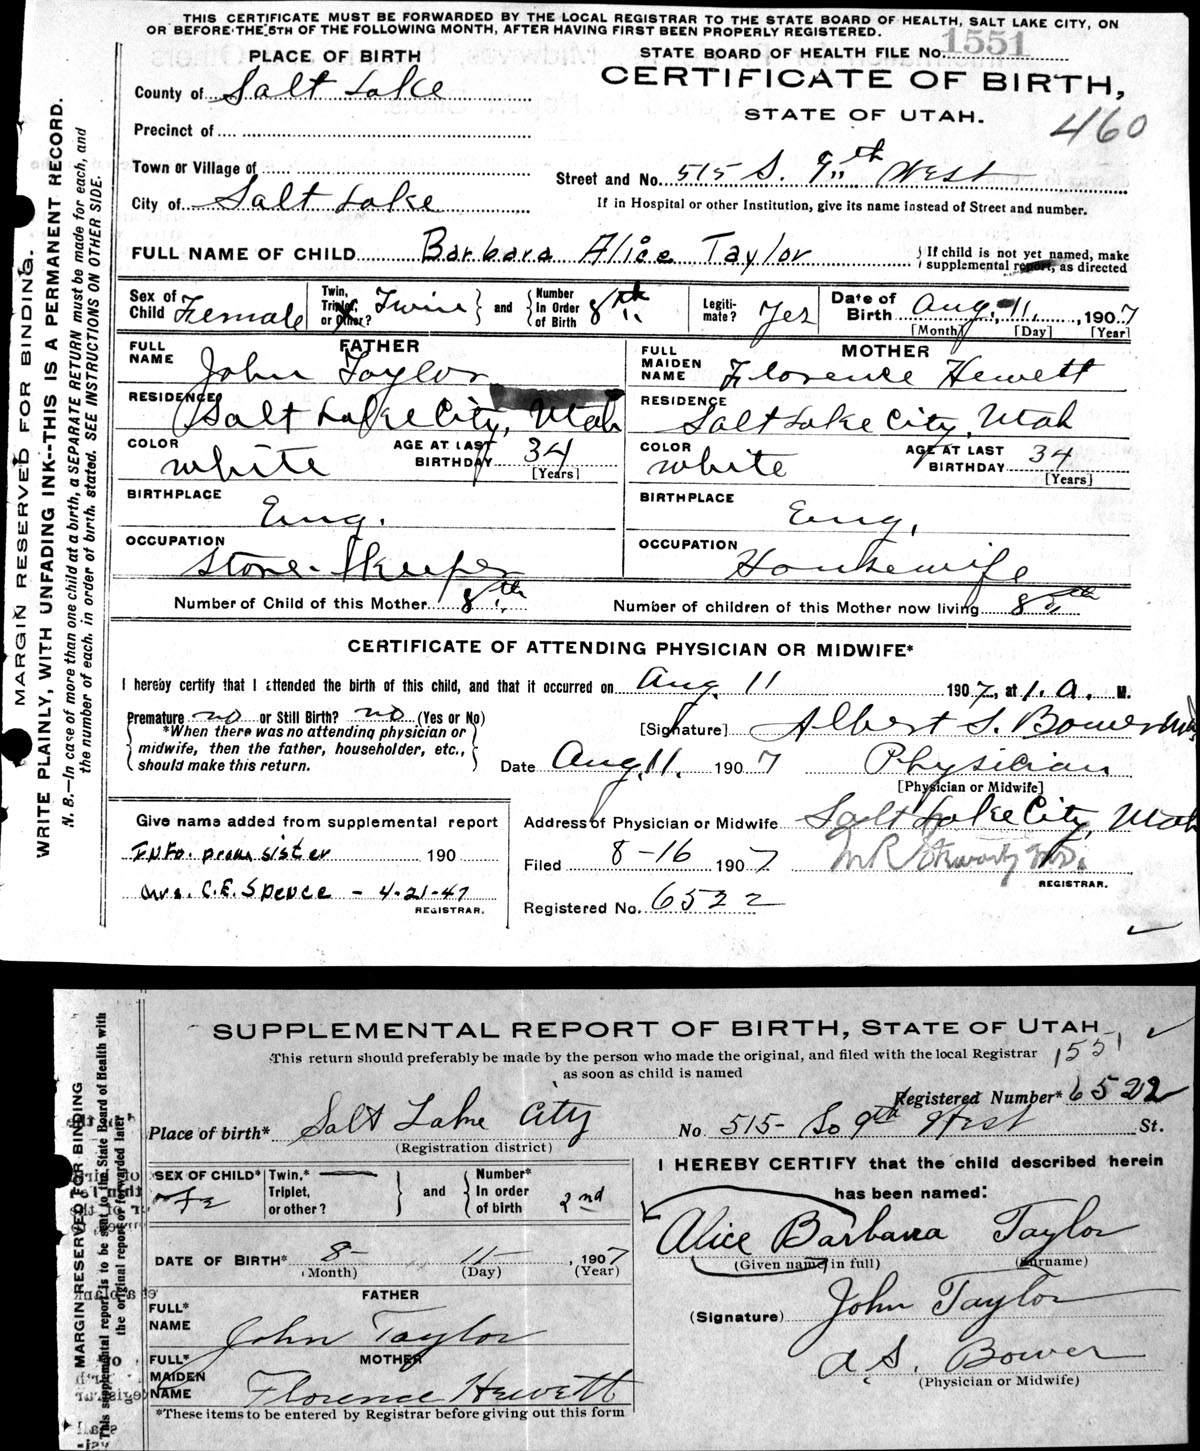 THIS CERTIFICATE MUST BE FORWARDED BY THE LOCAL REGISTRAR TO THE STATE BOARD OF HEALTH, SALT LAKE CITY, ON
OR BEFORE THE 5TH OF THE FOLLOWING MONTH, AFTER HAVING FIRST BEEN PROPERLY REGISTERED.
PLACE OF BIRTH
STATE BOARD OF HEALTH FILE No. 1551
County of Salt Lake
CERTIFICATE OF BIRTH,
STATE OF UTAH.
460
Precinct of
Town or Village of
Street and No. 515 S. 9th West
City of Salt Lake
If in Hospital or other Institution, give its name instead of Street and number.
FULL NAME OF CHILD Barbara Alice Taylor
If child is not yet named, make
supplemental report, as directed
Sex of Child Female
Twin, Triplet, or Other? Twin
and
Number In Order of Birth 8th
Legitimate? Yes
Date of Birth Aug. 11, 1907
[Month] [Day] [Year]
FATHER
FULL NAME John Taylor
RESIDENCE Salt Lake City, Utah
COLOR white
AGE AT LAST BIRTHDAY 34 [Years]
BIRTHPLACE Eng.
OCCUPATION Store-Keeper
MOTHER
FULL MAIDEN NAME Florence Hewett
RESIDENCE Salt Lake City, Utah
COLOR white
AGE AT LAST BIRTHDAY 34 [Years]
BIRTHPLACE Eng.
OCCUPATION Housewife
Number of Child of this Mother 8th
Number of children of this Mother now living 8th
CERTIFICATE OF ATTENDING PHYSICIAN OR MIDWIFE*
I hereby certify that I attended the birth of this child, and that it occurred on Aug. 11 1907, at 1. a. M.
Premature no or Still Birth? no (Yes or No)
*When there was no attending physician or
midwife, then the father, householder, etc.,
should make this return.
[Signature] Albert S. Bower
Date Aug. 11. 1907
Physician
[Physician or Midwife]
Give name added from supplemental report
Info. from sister 190
Mrs. C.E. Spence - 4-21-47
REGISTRAR.
Address of Physician or Midwife Salt Lake City, Utah
Filed 8-16 1907
REGISTRAR.
Registered No. 6522
MARGIN RESERVED FOR BINDING.
WRITE PLAINLY, WITH UNFADING INK--THIS IS A PERMANENT RECORD.
N. B.—In case of more than one child at a birth, a SEPARATE RETURN must be made for each, and
the number of each, in order of birth, stated. SEE INSTRUCTIONS ON OTHER SIDE.
SUPPLEMENTAL REPORT OF BIRTH, STATE OF UTAH
This return should preferably be made by the person who made the original, and filed with the local Registrar
as soon as child is named
1551
Registered Number* 6522
Place of birth* Salt Lake City
(Registration district)
No. 515- So 9th West St.
SEX OF CHILD* Fe
Twin,* Triplet, or other?
and
Number* In order of birth 2nd
I HEREBY CERTIFY that the child described herein
has been named:
Alice Barbara Taylor
(Given name in full) (Surname)
DATE OF BIRTH* 8- 11- , 1907
(Month) (Day) (Year)
FATHER
FULL* NAME John Taylor
(Signature) John Taylor
MOTHER
FULL* MAIDEN NAME Florence Hewett
A. S. Bower
(Physician or Midwife)
*These items to be entered by Registrar before giving out this form
MARGIN RESERVED FOR BINDING
This supplemental report is to be sent to the State Board of Health with
the original report or forwarded later